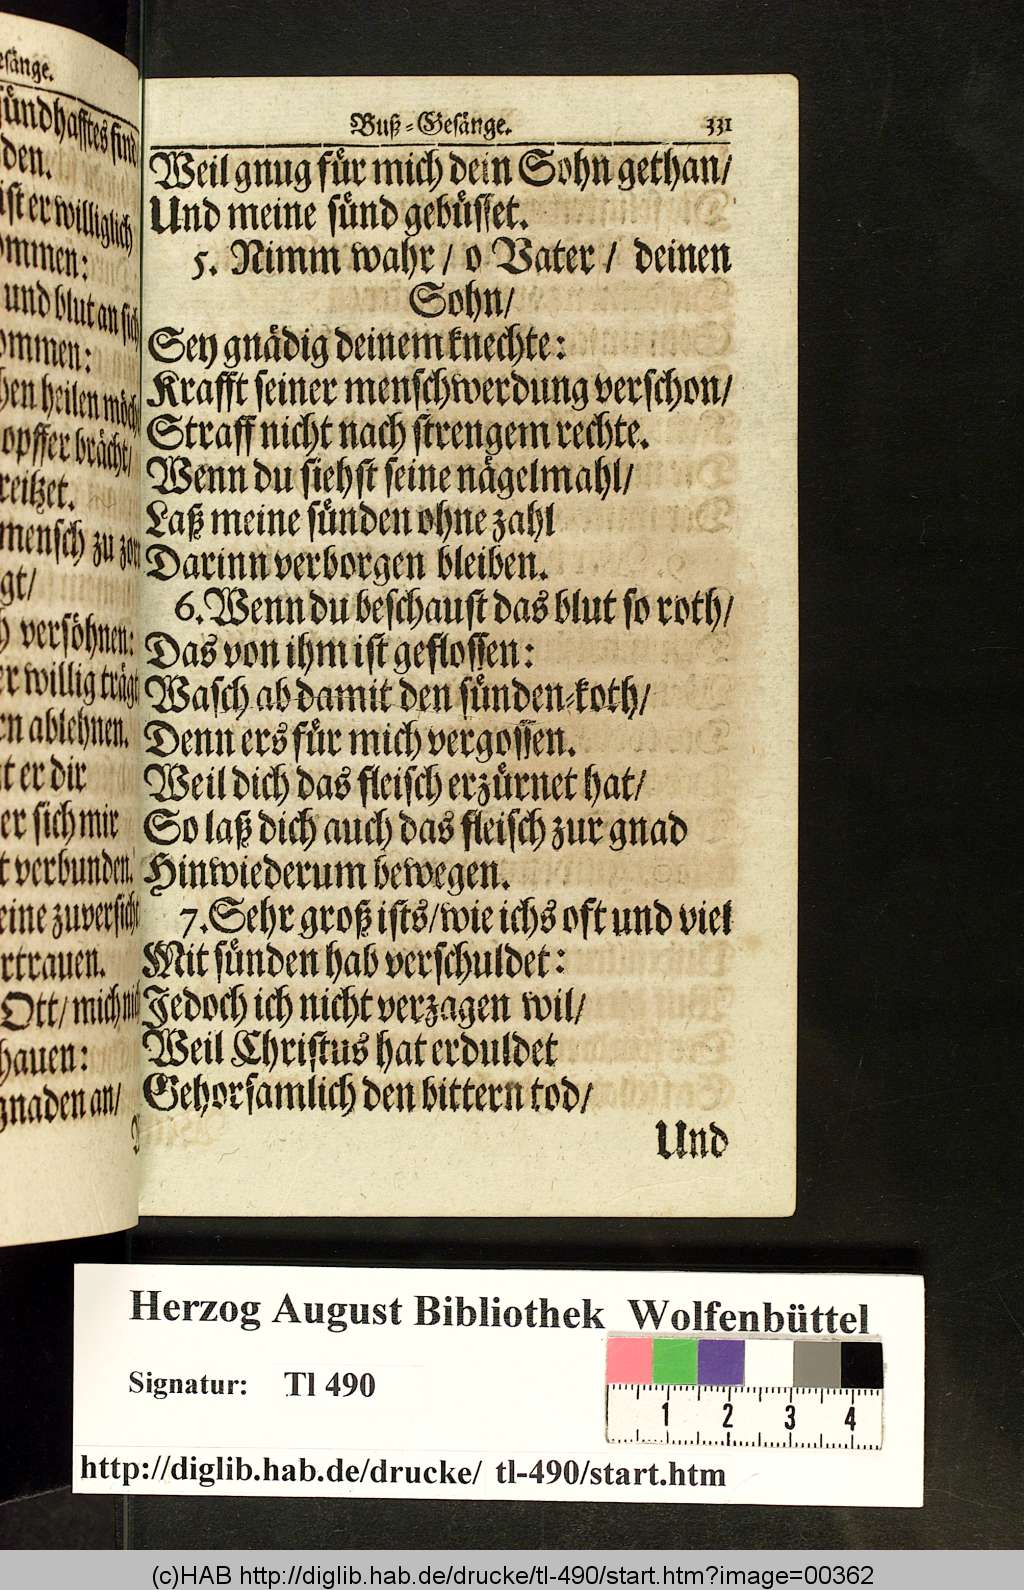 esänge.
sündhafftes find
den.
ist er williglich
ommen:
und blut an sich
ommen:
hen heilen möch
opffer brächt/
reitzet.
mensch zu zor
gt/
h versöhnen:
er willig trägt
rn ablehnen.
t er dir
er sich mir
t verbunden.
eine zuversicht
rtrauen.
Ott/ mich nic
hauen:
gnaden an/
Buß-Gesänge. 331
Weil gnug für mich dein Sohn gethan/
Und meine sünd gebüsset.
5. Nimm wahr/ o Vater/ deinen
Sohn/
Sey gnädig deinem knechte:
Krafft seiner menschwerdung verschon/
Straff nicht nach strengem rechte.
Wenn du siehst seine nägelmahl/
Laß meine sünden ohne zahl
Darinn verborgen bleiben.
6. Wenn du beschaust das blut so roth/
Das von ihm ist geflossen:
Wasch ab damit den sünden-koth/
Denn ers für mich vergossen.
Weil dich das fleisch erzürnet hat/
So laß dich auch das fleisch zur gnad
Hinwiederum bewegen.
7. Sehr groß ists/ wie ichs oft und viel
Mit sünden hab verschuldet:
Jedoch ich nicht verzagen wil/
Weil Christus hat erduldet
Gehorsamlich den bittern tod/
Und
Herzog August Bibliothek Wolfenbüttel
Signatur: Tl 490
1 2 3 4
http://diglib.hab.de/drucke/ tl-490/start.htm
(c)HAB http://diglib.hab.de/drucke/tl-490/start.htm?image=00362